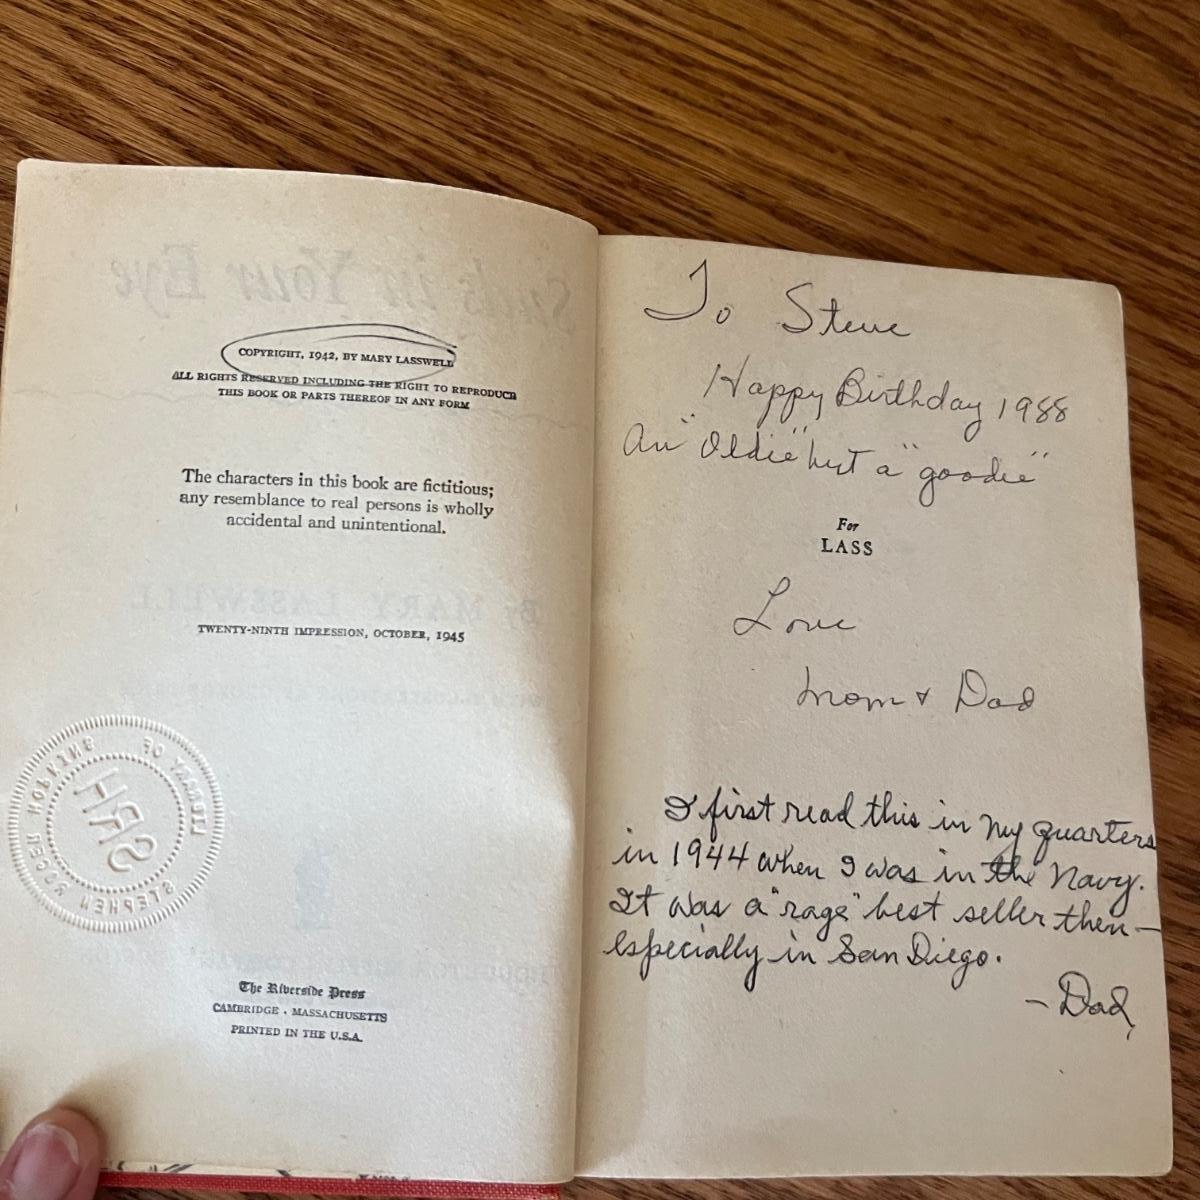 Suds in Your Eye
COPYRIGHT, 1942, BY MARY LASSWELL
ALL RIGHTS RESERVED INCLUDING THE RIGHT TO REPRODUCE
THIS BOOK OR PARTS THEREOF IN ANY FORM
The characters in this book are fictitious;
any resemblance to real persons is wholly
accidental and unintentional.
By MARY LASSWELL
TWENTY-NINTH IMPRESSION, OCTOBER, 1945
LIBRARY OF
STEPHEN ROGER HOPKINS
SRH
The Riverside Press
CAMBRIDGE · MASSACHUSETTS
PRINTED IN THE U.S.A.
To Steve
Happy Birthday 1988
An "Oldie" but a "goodie"
For
LASS
Love
Mom + Dad
I first read this in my quarters
in 1944 when I was in the Navy.
It was a "rage" best seller then —
especially in San Diego.
- Dad